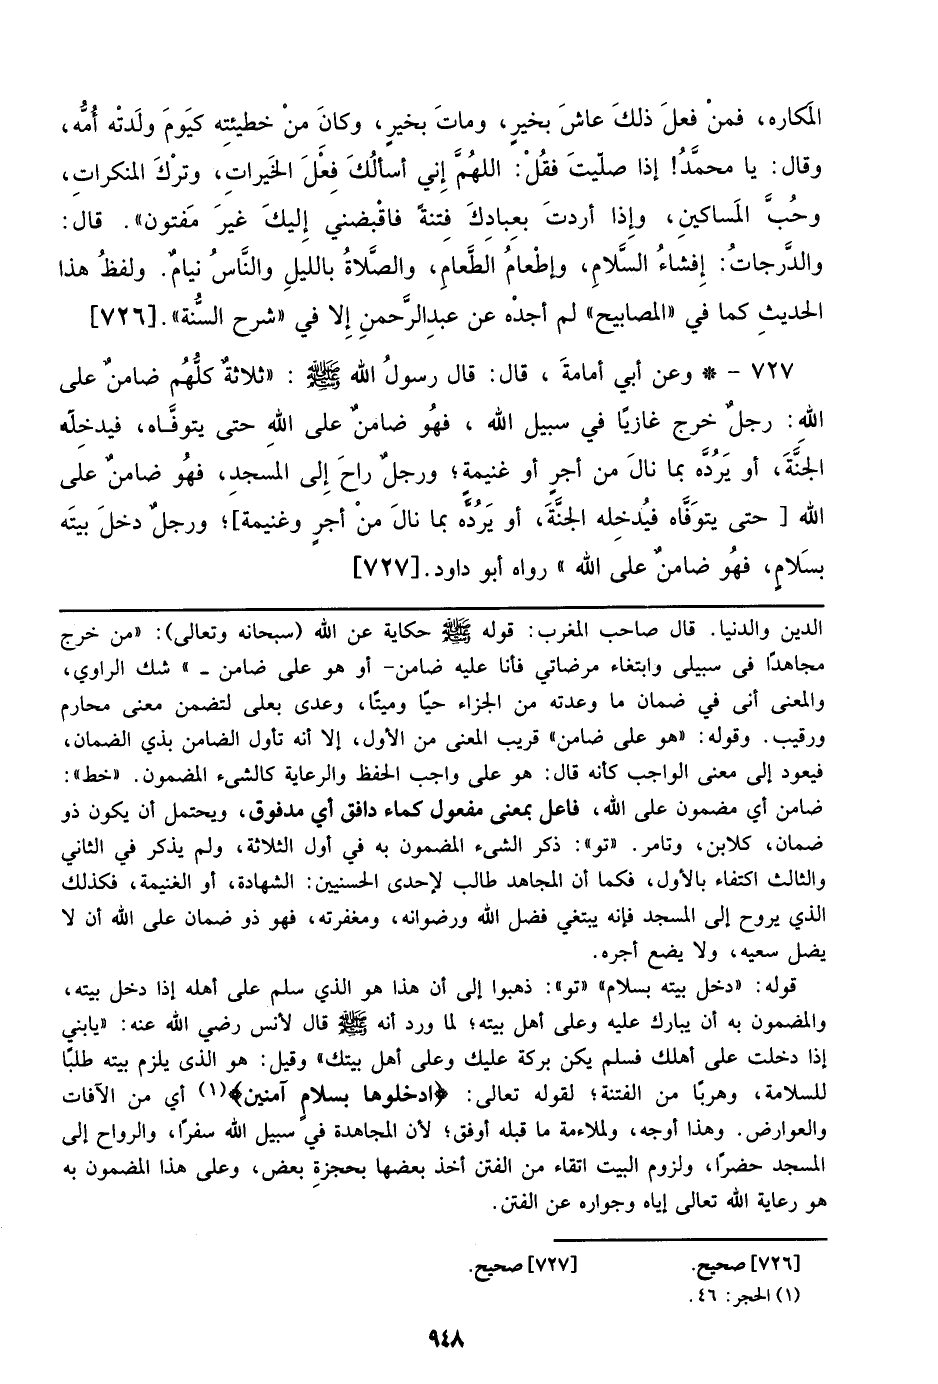 المَكاره، فمنْ فعلَ ذلكَ عاشَ بخيرٍ، وماتَ بخيرٍ، وكانَ منْ خطيئتِه كيَومَ ولَدتْه أُمُّه،
وقال: يا محمَّدُ! إذا صلّيتَ فقُلْ: اللهُمَّ إني أسألُكَ فِعْلَ الخَيراتِ، وترْكَ المنكراتِ،
وحُبَّ المَساكينِ، وإذا أردتَ بعِبادِكَ فِتنةً فاقْبضني إليكَ غيرَ مَفتون». قال:
والدَّرجاتُ: إفشاءُ السلَّامِ، وإطعامُ الطَّعامِ، والصَّلاةُ بالليلِ والنَّاسُ نيامٌ. ولفظُ هذا
الحديثِ كما في «المصابيح» لم أجدْه عن عبدِالرَّحمنِ إلا في «شرح السُّنة».[٧٢٦]
٧٢٧ - * وعن أبي أمامةَ ، قال: قال رسولُ الله ﷺ : «ثلاثةٌ كلُّهُم ضامنٌ على
اللهِ: رجلٌ خرج غازيًا في سبيل الله ، فهُو ضامنٌ على اللهِ حتى يتوفَّاه، فيدخِلَه
الجنَّةَ، أو يَرُدَّه بما نالَ من أجرٍ أو غنيمةٍ؛ ورجلٌ راحَ إلى المسجدِ، فهُو ضامنٌ على
الله [ حتى يتوَفَّاه فيُدخِله الجنَّةَ، أو يَرُدَّه بما نالَ منْ أجرٍ وغنيمة]؛ ورجلٌ دخلَ بيتَه
بسَلامٍ، فهُو ضامنٌ على الله » رواه أبو داود.[٧٢٧]
الدين والدنيا. قال صاحب المغرب: قوله ﷺ حكاية عن الله (سبحانه وتعالى): «من خرج
مجاهدًا فى سبيلى وابتغاء مرضاتي فأنا عليه ضامن- أو هو على ضامن ـ » شك الراوي،
والمعنى أنى في ضمان ما وعدته من الجزاء حيًا وميتًا، وعدى بعلى لتضمن معنى محارم
ورقيب. وقوله: «هو على ضامن» قريب المعنى من الأول، إلا أنه تأول الضامن بذي الضمان،
فيعود إلى معنى الواجب كأنه قال: هو على واجب الحفظ والرعاية كالشىء المضمون. «خط»:
ضامن أي مضمون على الله، فاعل بمعنى مفعول كماء دافق أي مدفوق، ويحتمل أن يكون ذو
ضمان، كلابن، وتامر. «تو»: ذكر الشىء المضمون به في أول الثلاثة، ولم يذكر في الثاني
والثالث اكتفاء بالأول، فكما أن المجاهد طالب لإحدى الحسنيين: الشهادة، أو الغنيمة، فكذلك
الذي يروح إلى المسجد فإنه يبتغي فضل الله ورضوانه، ومغفرته، فهو ذو ضمان على الله أن لا
يضل سعيه، ولا يضع أجره.
قوله: «دخل بيته بسلام» «تو»: ذهبوا إلى أن هذا هو الذي سلم على أهله إذا دخل بيته،
والمضمون به أن يبارك عليه وعلى أهل بيته؛ لما ورد أنه ﷺ قال لأنس رضي الله عنه: «يابني
إذا دخلت على أهلك فسلم يكن بركة عليك وعلى أهل بيتك» وقيل: هو الذى يلزم بيته طلبًا
للسلامة، وهربًا من الفتنة؛ لقوله تعالى: ﴿ادخلوها بسلامٍ آمنين﴾(١) أي من الآفات
والعوارض. وهذا أوجه، ولملاءمة ما قبله أوفق؛ لأن المجاهدة في سبيل الله سفرًا، والرواح إلى
المسجد حضرًا، ولزوم البيت اتقاء من الفتن أخذ بعضها بحجزةِ بعض، وعلى هذا المضمون به
هو رعاية الله تعالى إياه وجواره عن الفتن.
[٧٢٦] صحيح. [٧٢٧] صحيح.
(١) الحجر: ٤٦.
٩٤٨